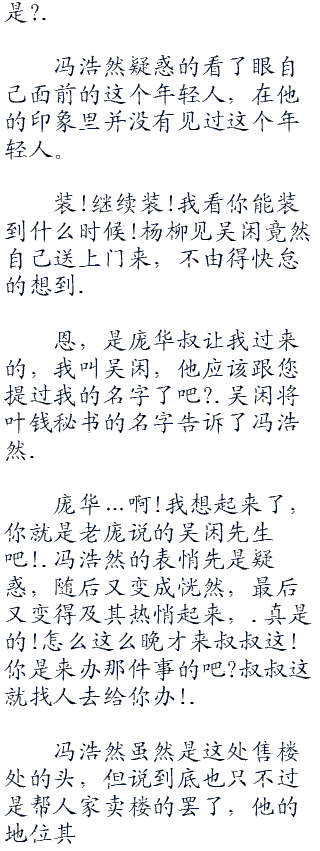 是?.
冯浩然疑惑的看了眼自
己面前的这个年轻人，在他
的印象里并没有见过这个年
轻人。
装!继续装!我看你能装
到什么时候!杨柳见吴闲竟然
自己送上门来，不由得快怠
的想到.
恩，是庞华叔让我过来
的，我叫吴闲，他应该跟您
提过我的名字了吧?.吴闲将
叶钱秘书的名字告诉了冯浩
然.
庞华…啊!我想起来了，
你就是老庞说的吴闲先生
吧!.冯浩然的表悄先是疑
惑，随后又变成恍然，最后
又变得及其热悄起来，.真是
的!怎么这么晚才来叔叔这!
你是来办那件事的吧?叔叔这
就找人去给你办!.
冯浩然虽然是这处售楼
处的头，但说到底也只不过
是帮人家卖楼的罢了，他的
地位其